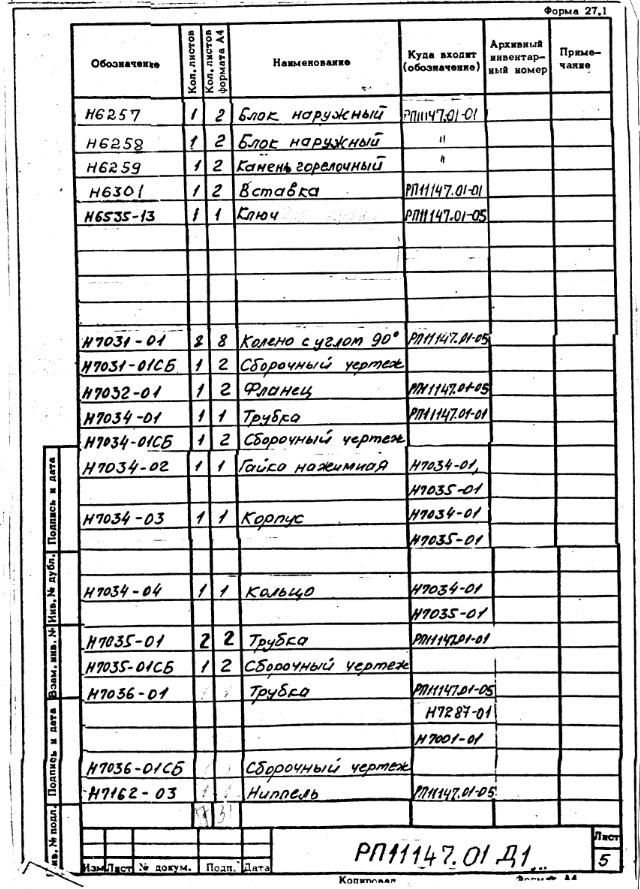 Форма 27.1
Обозначение Кол. листов Кол. листов формата А4 Наименование Куда входит (обозначение) Архивный инвентарный номер Примечание
Н6257 1 2 Блок наружный РП11147.01-01
Н6258 1 2 Блок наружный "
Н6259 1 2 Камень горелочный "
Н6301 1 2 Вставка РП11147.01-01
Н6535-13 1 1 Ключ РП11147.01-05
Н7031-01 8 8 Колено с углом 90° РП11147.01-05
Н7031-01СБ 1 2 Сборочный чертеж
Н7032-01 1 2 Фланец РП11147.01-05
Н7034-01 1 1 Трубка РП11147.01-01
Н7034-01СБ 1 2 Сборочный чертеж
Н7034-02 1 1 Гайка нажимная Н7034-01,
Н7035-01
Н7034-03 1 1 Корпус Н7034-01
Н7035-01
Н7034-04 1 1 Кольцо Н7034-01
Н7035-01
Н7035-01 2 2 Трубка РП11147.01-01
Н7035-01СБ 1 2 Сборочный чертеж
Н7036-01 Трубка РП11147.01-05
Н7287-01
Н7001-01
Н7036-01СБ Сборочный чертеж
Н7162-03 Ниппель РП11147.01-05
Инв. № подл. Подпись и дата Взам. инв. № Инв. № дубл. Подпись и дата
РП11147.01 Д1
Лист
5
Изм Лист № докум. Подп. Дата
Копировал Формат А4